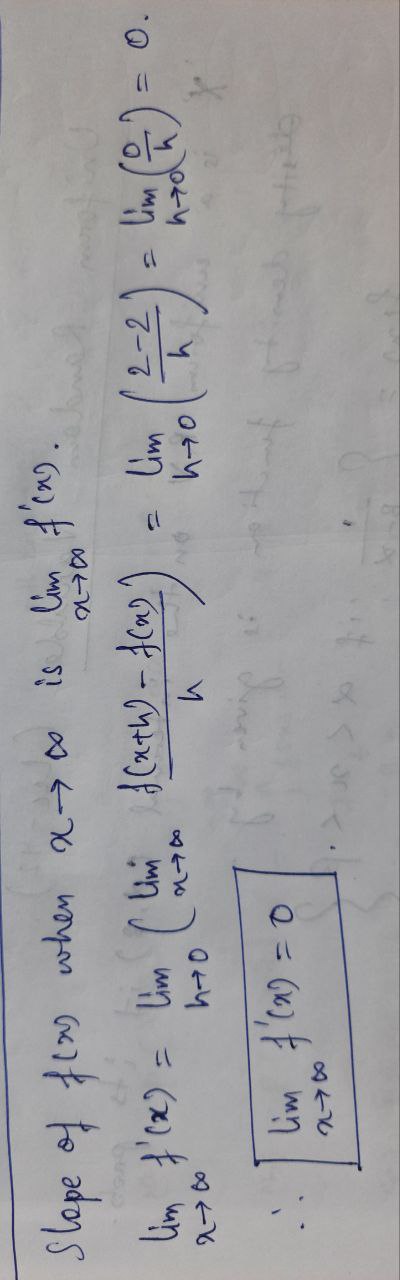 Slope of f(x) when x → ∞ is lim x→∞ f'(x).
lim x→∞ f'(x) = lim h→0 ( lim x→∞ f(x+h) - f(x) / h ) = lim h→0 ( 2-2 / h ) = lim h→0 ( 0 / h ) = 0.
∴ lim x→∞ f'(x) = 0